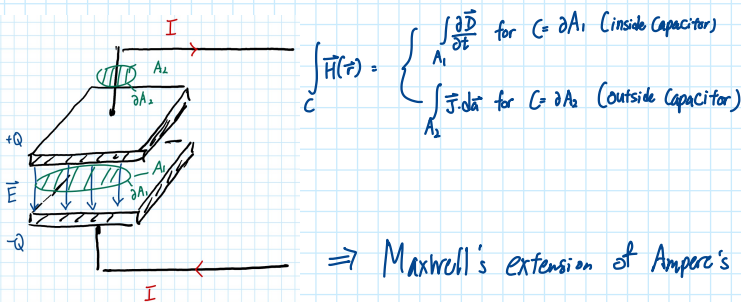 I
A₂
∂A₂
+Q
A₁
∂A₁
E⃗
-Q
I
∫_C H⃗(r⃗) = { ∫_A₁ ∂D⃗/∂t for C= ∂A₁ (inside Capacitor)
∫_A₂ J⃗·da⃗ for C= ∂A₂ (outside Capacitor)
⇒ Maxwell's extension of Ampere's